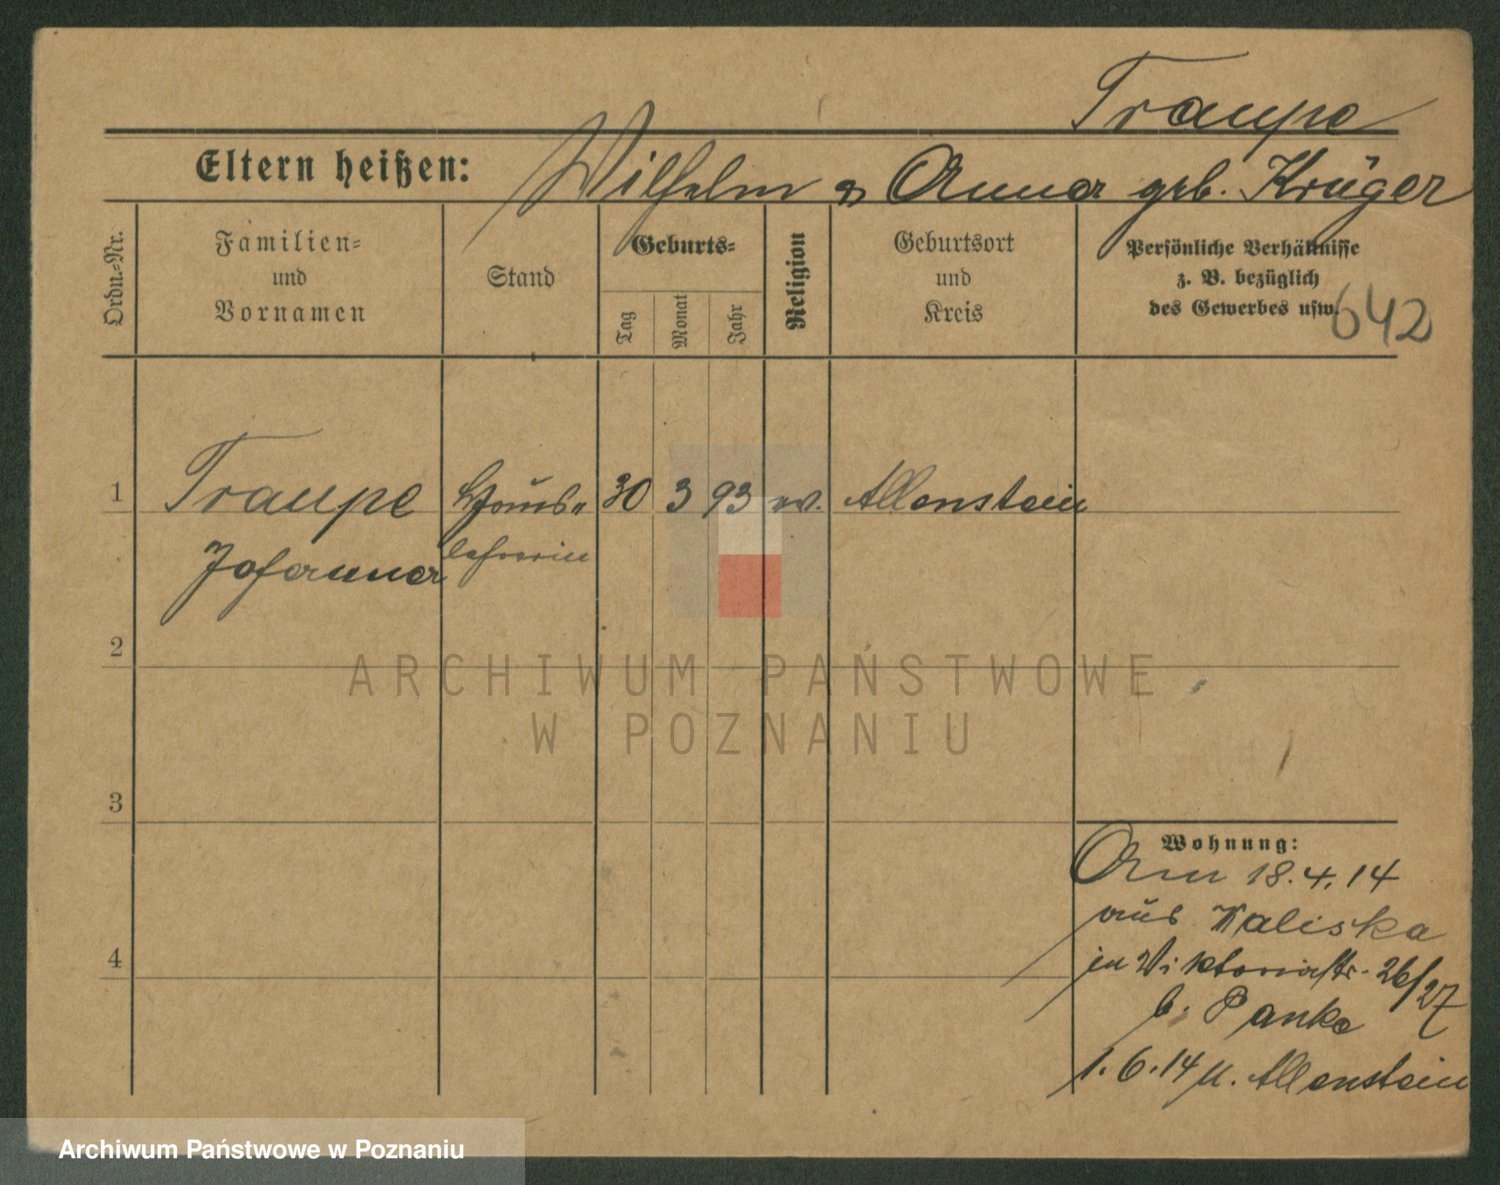 Traupe
Eltern heißen: Wilhelm u Anna geb. Krüger
Ordn.-Nr.
Familien-
und
Vornamen
Stand
Geburts-
Tag
Monat
Jahr
Religion
Geburtsort
und
Kreis
Persönliche Verhältnisse
z. B. bezüglich
des Gewerbes usw.
642
1 Traupe Haus- 30 3 93 ev. Allenstein
Johanna lehrerin
2
3
4
ARCHIWUM PAŃSTWOWE
W POZNANIU
Wohnung:
Am 18.4.14
aus Kaliska
in Viktoriastr. 26/27
b. Panke
1.6.14 n. Allenstein
Archiwum Państwowe w Poznaniu